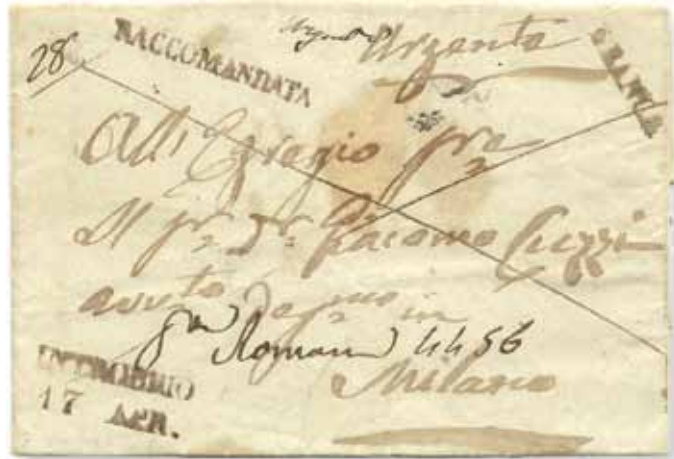 28
RACCOMANDATA
Urgente
FRANCA
All' Egregio Sre
Il Sr Dr Giacomo
in
Romano 4456
Milano
INTROBBIO
17 APR.